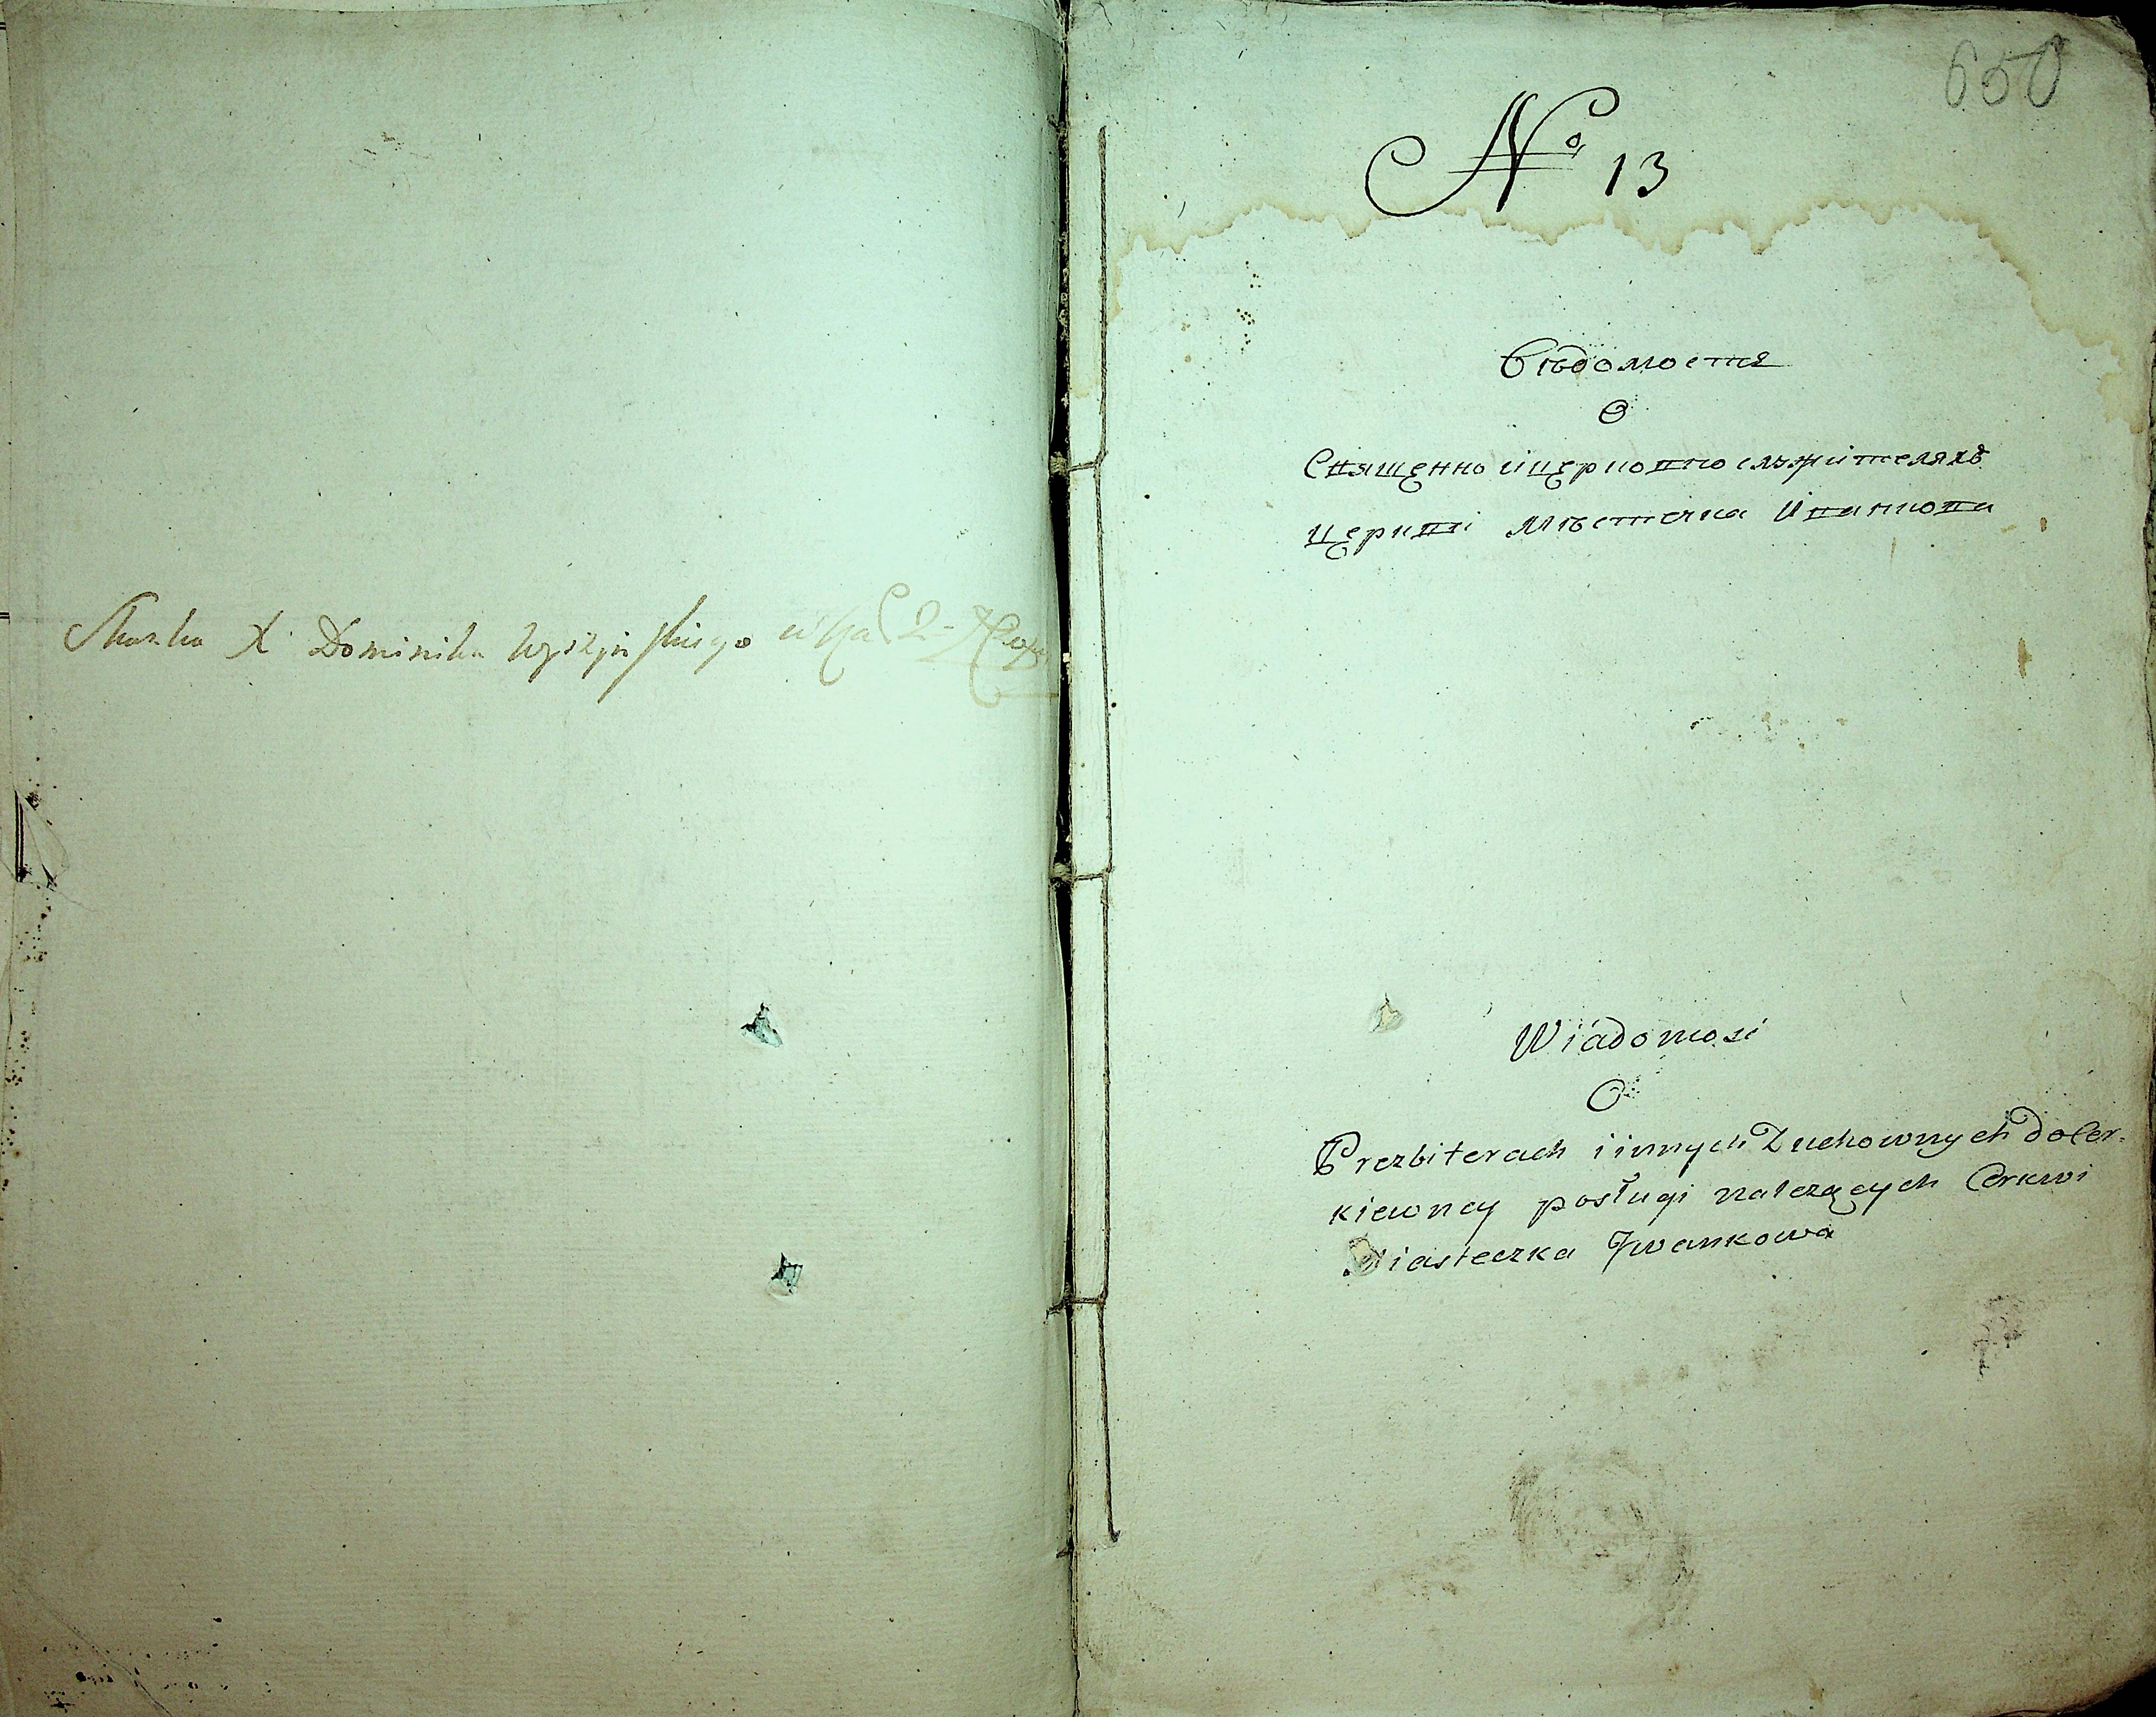 Skarha X Dominika Wyszyńskiego
650
No 13
Вѣдомость
О
Священно ицерковно служителяхъ
церкви мѣстечка Иванкова
Wiadomosć
O
Prezbiterach i innych Duchownych do Cer-
kiewney posługi należących Cerkwi
Miasteczka Jwankowa